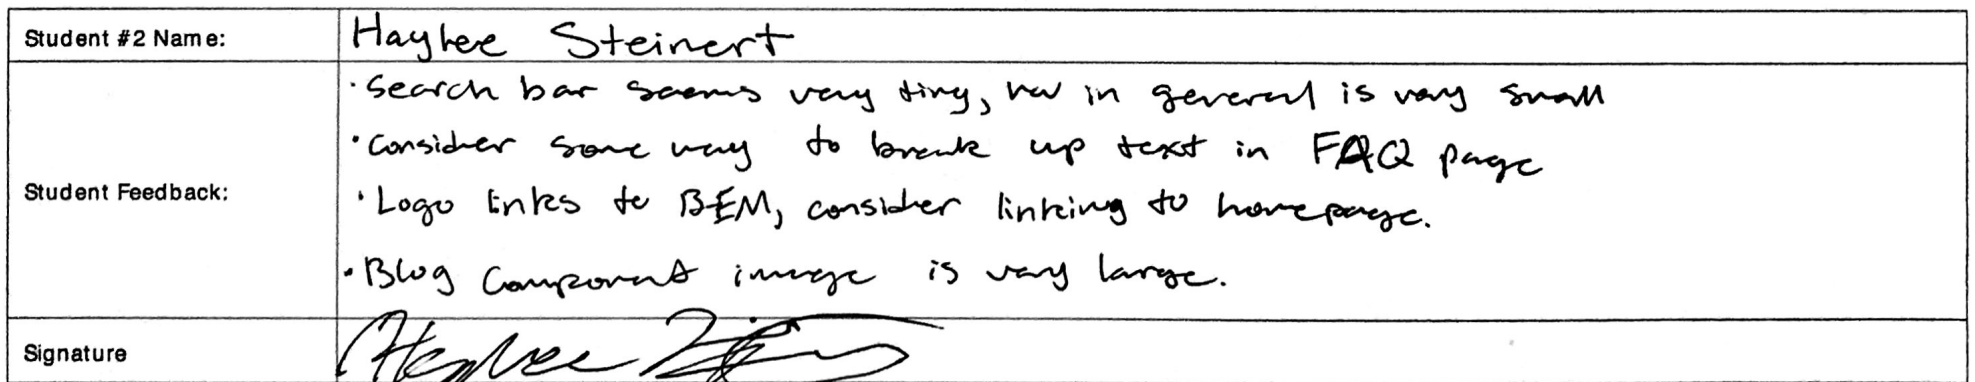 Student #2 Name: Haylee Steinert
· Search bar seems very tiny, nav in general is very small
· Consider some way to break up text in FAQ page
Student Feedback:
· Logo links to BEM, consider linking to homepage.
· Blog Component image is very large.
Signature Haylee